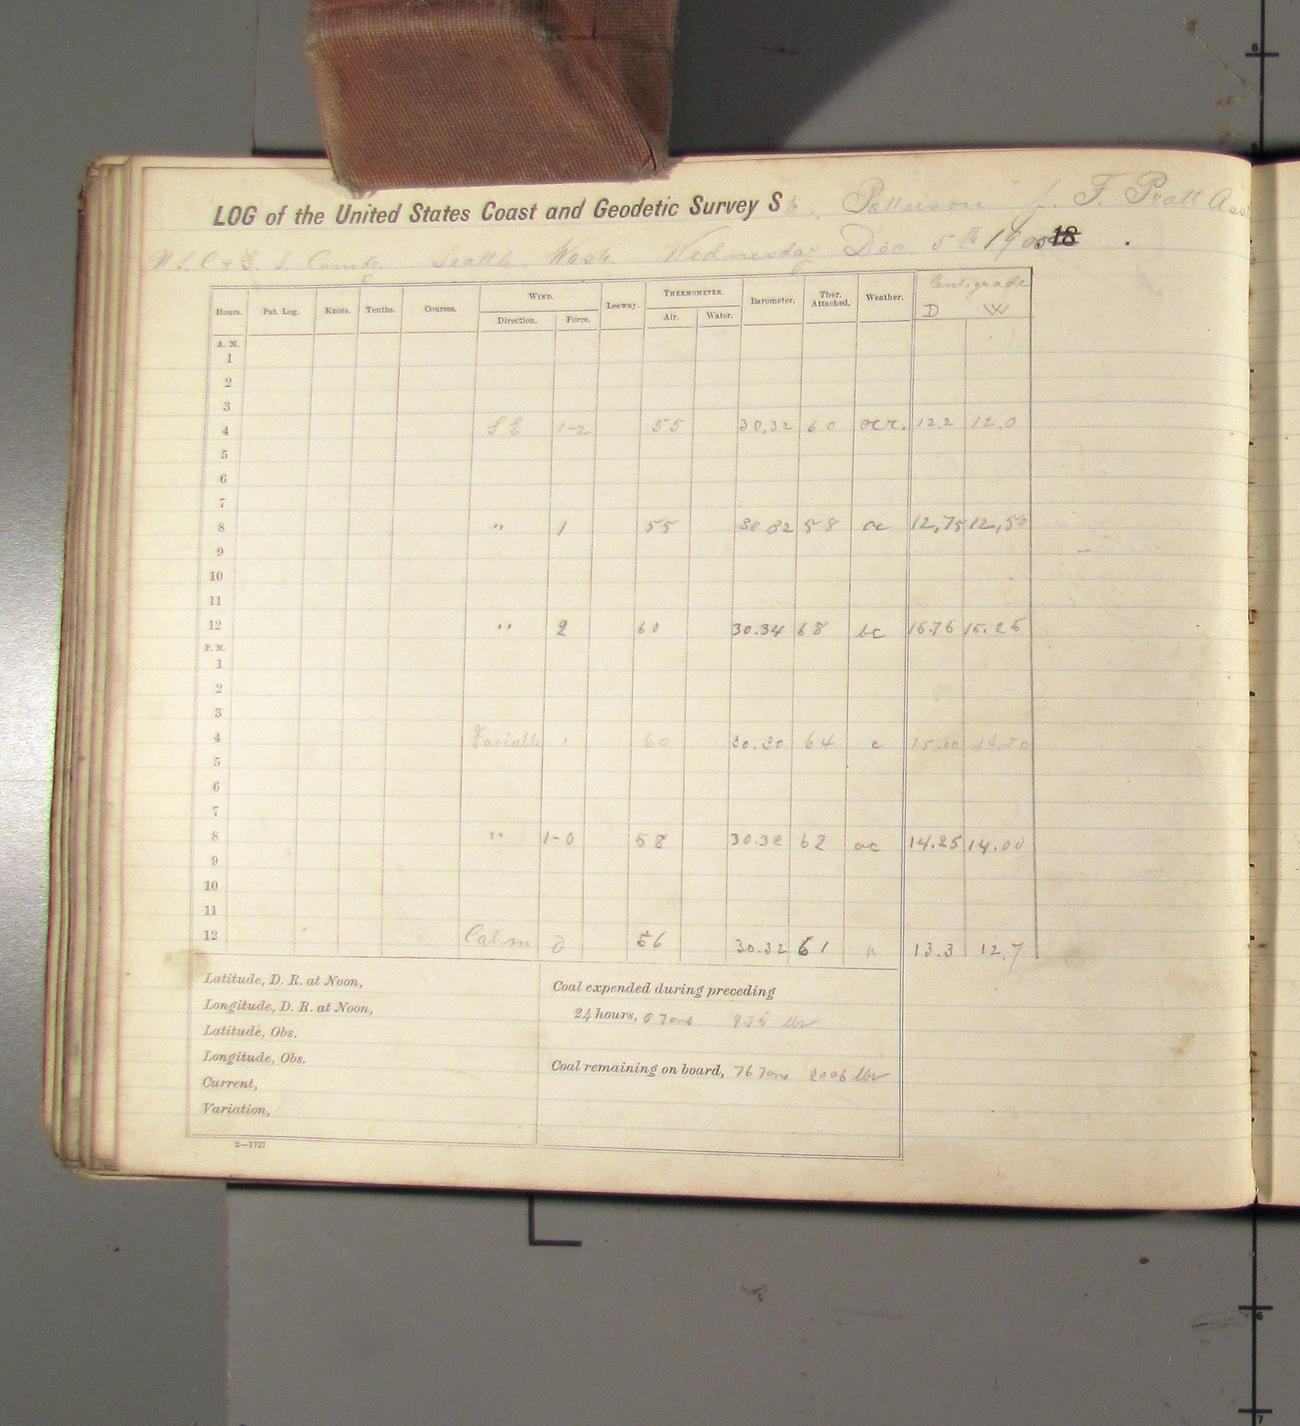 LOG of the United States Coast and Geodetic Survey Str. Patterson J. F. Pratt Asst
U.S.C. & G. S. Comdg. Seattle Wash. Wednesday Dec. 5th 1900 18
Hours. Pat. Log. Knots. Tenths. Courses. WIND. Leeway. THERMOMETER. Barometer. Ther. Attached. Weather. Centigrade
Direction. Force. Air. Water. D W
A. M.
1
2
3
4 SE 1-2 55 30.32 60 ocr. 12.2 12.0
5
6
7
8 " 1 55 30 32 58 oc 12,75 12,50
9
10
11
12 " 2 60 30.34 68 bc 15.75 15.25
P. M.
1
2
3
4 Variable 1 60 30.30 64 c 15.00 14.50
5
6
7
8 " 1-0 58 30.32 62 oc 14.25 14.00
9
10
11
12 Calm 0 56 30.32 61 " 13.3 12.7
Latitude, D. R. at Noon,
Longitude, D. R. at Noon,
Latitude, Obs.
Longitude, Obs.
Current,
Variation,
Coal expended during preceding
24 hours, 0 Tons 935 lbs
Coal remaining on board, 76 Tons 2006 lbs
2—1727
6
6
7